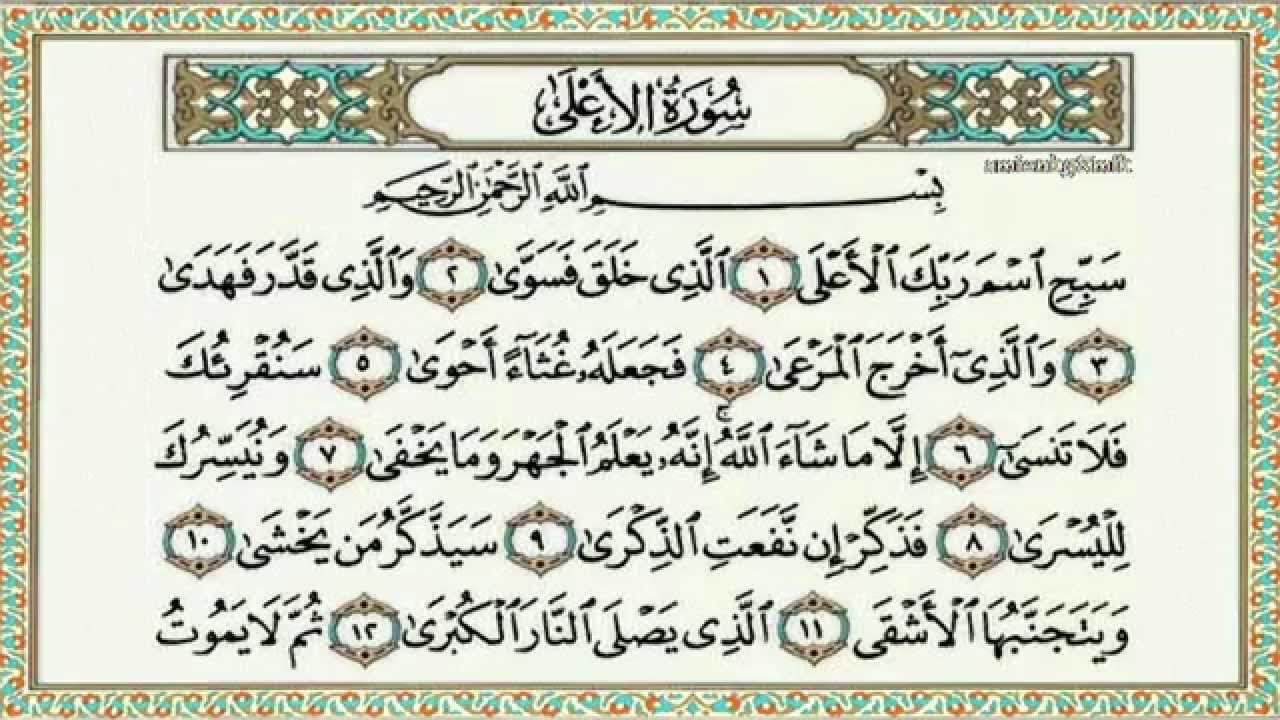 سُورَةُ الأَعْلَىٰ
بِسْمِ اللَّهِ الرَّحْمَٰنِ الرَّحِيمِ
سَبِّحِ ٱسْمَ رَبِّكَ ٱلْأَعْلَى ١ ٱلَّذِى خَلَقَ فَسَوَّىٰ ٢ وَٱلَّذِى قَدَّرَ فَهَدَىٰ
٣ وَٱلَّذِىٓ أَخْرَجَ ٱلْمَرْعَىٰ ٤ فَجَعَلَهُۥ غُثَآءً أَحْوَىٰ ٥ سَنُقْرِئُكَ
فَلَا تَنسَىٰٓ ٦ إِلَّا مَا شَآءَ ٱللَّهُ ۚ إِنَّهُۥ يَعْلَمُ ٱلْجَهْرَ وَمَا يَخْفَىٰ ٧ وَنُيَسِّرُكَ
لِلْيُسْرَىٰ ٨ فَذَكِّرْ إِن نَّفَعَتِ ٱلذِّكْرَىٰ ٩ سَيَذَّكَّرُ مَن يَخْشَىٰ ١٠
وَيَتَجَنَّبُهَا ٱلْأَشْقَى ١١ ٱلَّذِى يَصْلَى ٱلنَّارَ ٱلْكُبْرَىٰ ١٢ ثُمَّ لَا يَمُوتُ